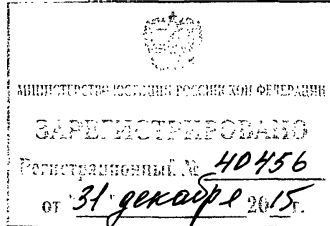 МИНИСТЕРСТВО ЮСТИЦИИ РОССИЙСКОЙ ФЕДЕРАЦИИ
ЗАРЕГИСТРИРОВАНО
Регистрационный № 40456
от "31" декабря 2015г.